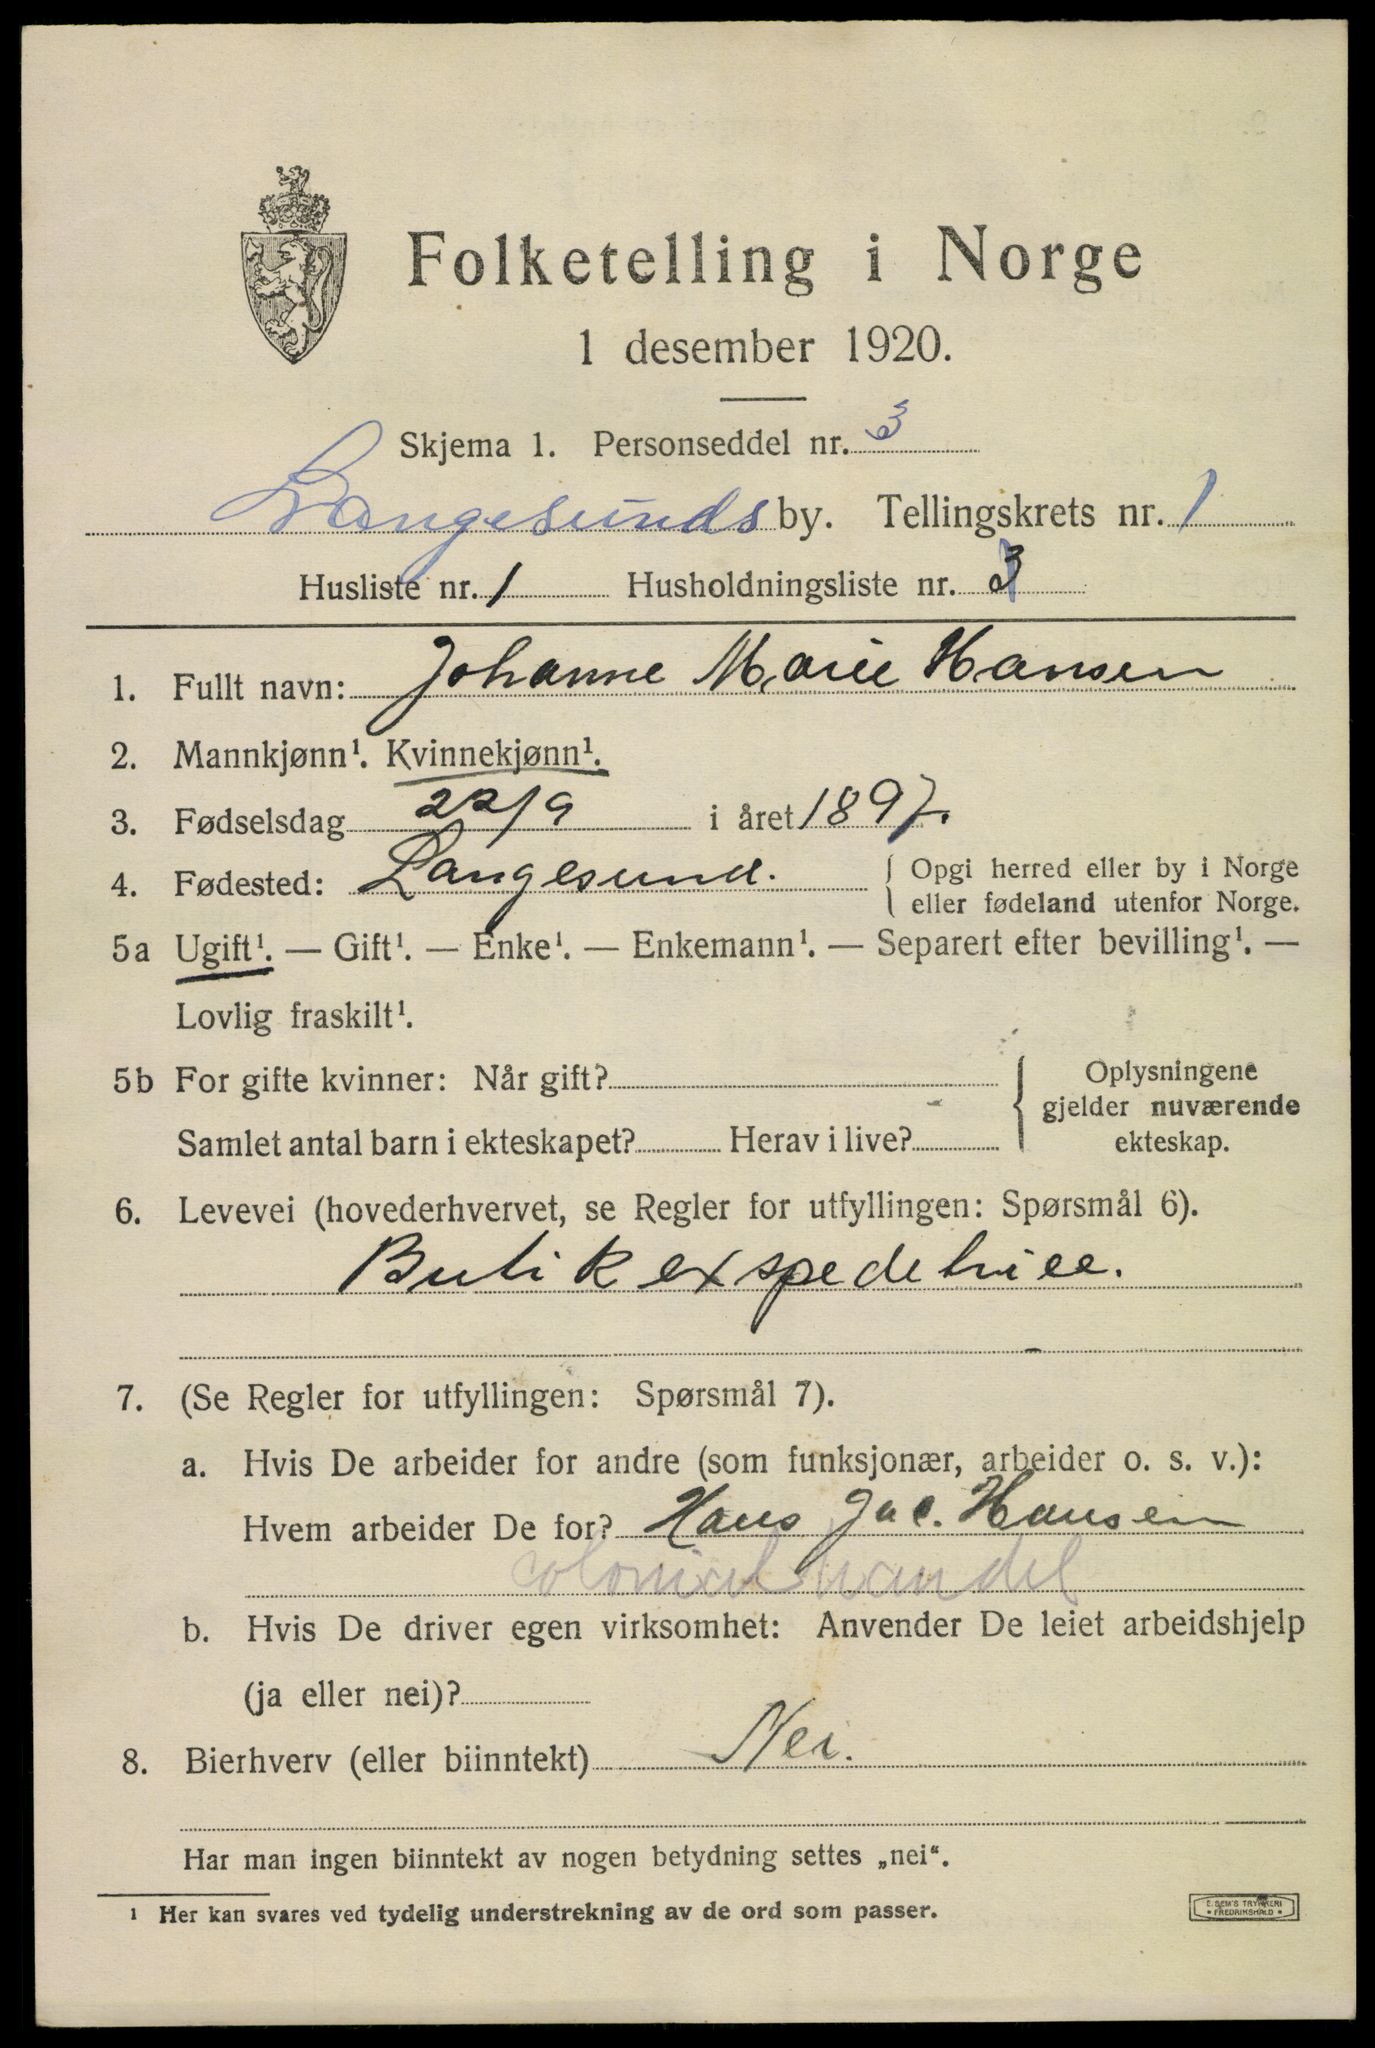 Folketelling i Norge
1 desember 1920.
Skjema 1. Personseddel nr. 3
Langesunds by. Tellingskrets nr. 1
Husliste nr. 1 Husholdningsliste nr. 3
1. Fullt navn: Johanne Marie Hansen
2. Mannkjønn¹. Kvinnekjønn¹.
3. Fødselsdag 22/9 i året 1897.
4. Fødested: Langesund. { Opgi herred eller by i Norge
eller fødeland utenfor Norge.
5a Ugift¹. — Gift¹. — Enke¹. — Enkemann¹. — Separert efter bevilling¹. —
Lovlig fraskilt¹.
5b For gifte kvinner: Når gift? { Oplysningene
gjelder nuværende
Samlet antal barn i ekteskapet? Herav i live? ekteskap.
6. Levevei (hovederhvervet, se Regler for utfyllingen: Spørsmål 6).
Butikexspedetrice.
7. (Se Regler for utfyllingen: Spørsmål 7).
a. Hvis De arbeider for andre (som funksjonær, arbeider o. s. v.):
Hvem arbeider De for? Hans Jac. Hansen
colonialhandel
b. Hvis De driver egen virksomhet: Anvender De leiet arbeidshjelp
(ja eller nei)?
8. Bierhverv (eller biinntekt) Nei.
Har man ingen biinntekt av nogen betydning settes „nei“.
¹ Her kan svares ved tydelig understrekning av de ord som passer.
E. SEM'S TRYKKERI
* FREDRIKSHALD *